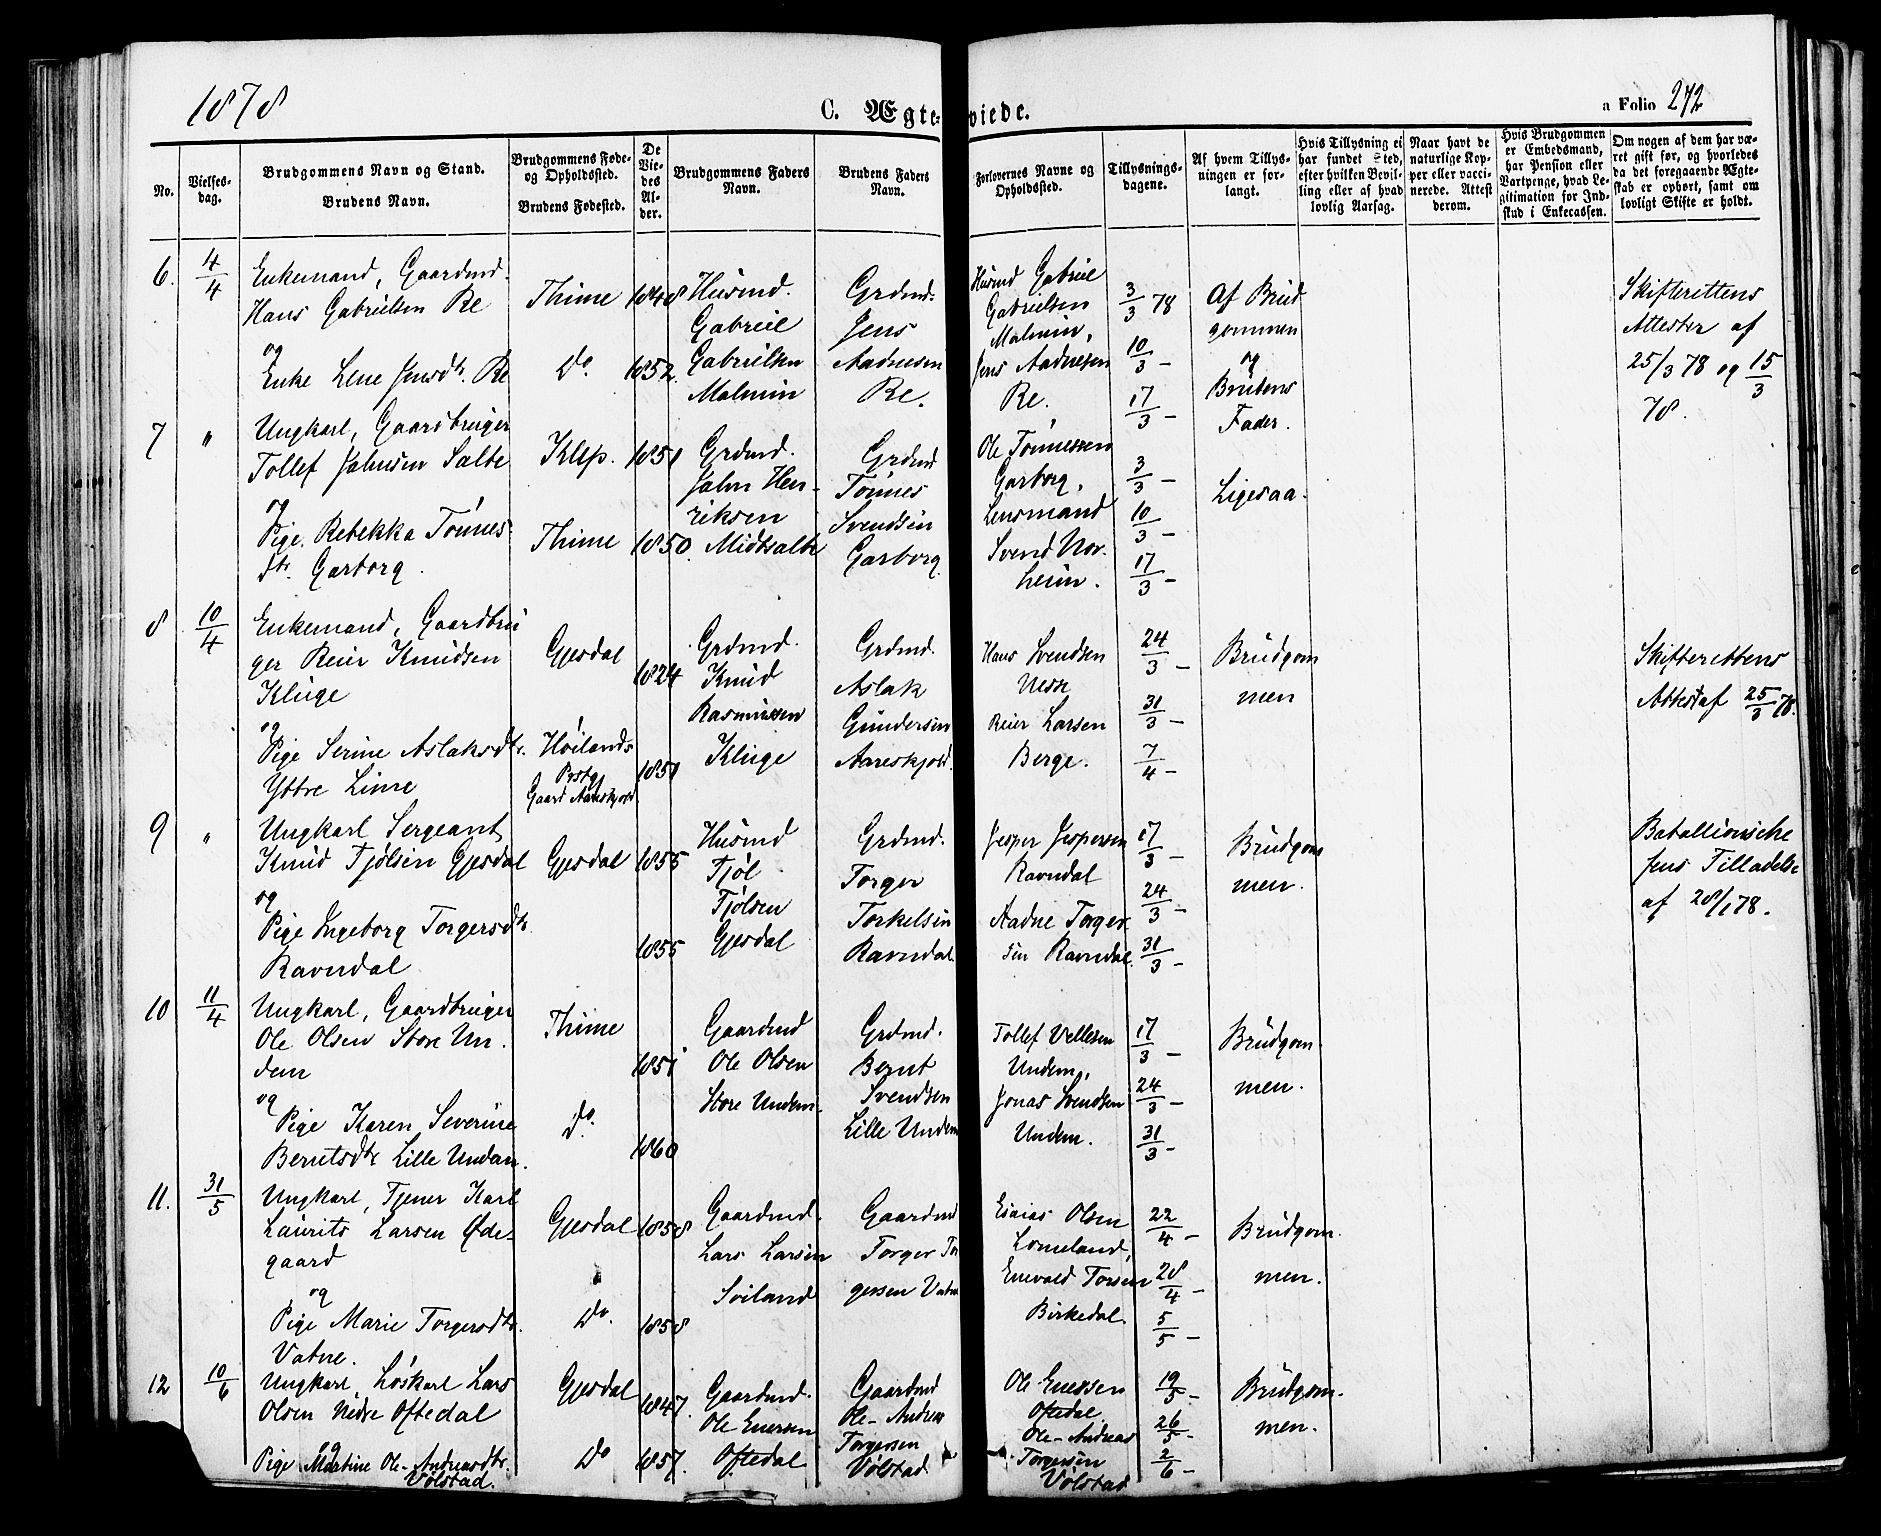 1878
C. Ægteviede.
a Folio 272
No.
Vielses-
dag.
Brudgommens Navn og Stand.
Brudens Navn.
Brudgommens Føde-
og Opholdssted.
Brudens Fødested.
De
Vie-
des
Al-
der.
Brudgommens Faders
Navn.
Brudens Faders
Navn.
Forlovernes Navne og
Opholdssted.
Tillysnings-
dagene.
Af hvem Tillys-
ningen er for-
langt.
Hvis Tillysning ei
har fundet Sted,
efter hvilken Bevil-
ling eller af hvad
lovlig Aarsag.
Naar havt de
naturlige Kop-
per eller vacci-
nerede. Attest
derom.
Hvis Brudgommen
er Embedsmand,
har Pension eller
Vartpenge, hvad Le-
gitimation for Ind-
skud i Enkecassen.
Om nogen af dem har væ-
ret gift før, og hvorledes
da det foregaaende Ægte-
skab er ophørt, samt om
lovligt Skifte er holdt.
6.
4/4
Enkemand, Gaardmd.
Hans Gabrielsen Re
og
Enke Lene Jensdtr. Re
Thime
Do.
1848
1852.
Husmd.
Gabriel
Gabrielsen
Malmin
Grdmd.
Jens
Aadnesen
Re.
Husmd Gabriel
Gabrielsen
Malmin,
Jens Aadnesen
Re.
3/3 78
10/3 –
17/3 –
Af Brud
gommen
og
Brudens
Fader.
Skifterettens
Attester af
25/3 78 og 15/3
78.
7
"
Ungkarl, Gaardbruger
Tollef Johnsen Salte
og
Pige Rebekka Tønnes
dtr. Garborg.
Klep.
Thime
1851
1850.
Grdmd.
John Hen-
riksen
Midtsalte
Grdmd
Tønnes
Svendsen
Garborg
Ole Tønnessen
Garborg,
Lensmand
Svend Nor-
heim.
3/3 –
10/3 –
17/3 –
Ligesaa.
8
10/4
Enkemand, Gaardbru
ger Reier Knudsen
Kluge
og
Pige Serine Aslaksdtr.
Yttre Lime
Gjesdal
Høilands
Prstg
Gaard Aareskjold
1824
1851
Grdmd.
Knud
Rasmussen
Kluge
Grdmd.
Aslak
Gundersen
Aareskjold.
Hans Svendsen
Ueske
Reier Larsen
Berge.
24/3 –
31/3 –
7/4 –
Brudgom
men
Skifterettens
Attest af 25/3 78.
9
"
Ungkarl Sergeant
Knud Tjølsen Gjesdal
og
Pige Ingeborg Torgersdtr
Ravndal
Gjesdal
1855
1855
Husmd
Tjøl
Tjølsen
Gjesdal
Grdmd.
Torger
Torkelsen
Ravndal.
Jesper Jespersen
Ravndal
Aadne Torger
sen Ravndal.
17/3 –
24/3 –
31/3 –
Brudgom
men.
Batallionsche
fens Tilladelse
af 28/1 78.
10
11/4
Ungkarl, Gaardbruger
Ole Olsen Store Un.
dem
og
Pige Karen Severine
Berntsdtr Lille Undem.
Thime
Do.
1851
1860
Gaardmd
Ole Olsen
Store Undem.
Grdmd.
Bernt
Svendsen
Lille Undem
Tollef Vellesen
Undem,
Jonas Svendsen
Undem.
17/3 –
24/3 –
31/3 –
Brudgom.
men.
11.
31/5
Ungkarl, Tjener Karl
Laurits Larsen Øde-
gaard
og
Pige Marie Torgersdtr.
Vatne.
Gjesdal
Do.
1858
1858
Gaardmd.
Lars Larsen
Soiland
Gaardmd
Torger Tor
gersen Vatne
Esaias Olsen
Lomeland,
Enevald Torsen
Birkedal.
22/4 –
28/4 –
5/5 –
Brudgom.
men.
12
10/6
Ungkarl, Løskarl Lars
Olsen Nedre Oftedal
og
Pige Martine Ole-Andreasdtr.
Vølstad.
Gjesdal
Do
1847.
1857.
Gaardmd.
Ole Enersen
Oftedal
Gaardmd
Ole-Andreas
Torgersen
Vølstad
Ole Enersen
Oftedal.
Ole-Andreas
Torgersen
Vølstad
19/5 –
26/5 –
2/6 –
Brudgom.
men.